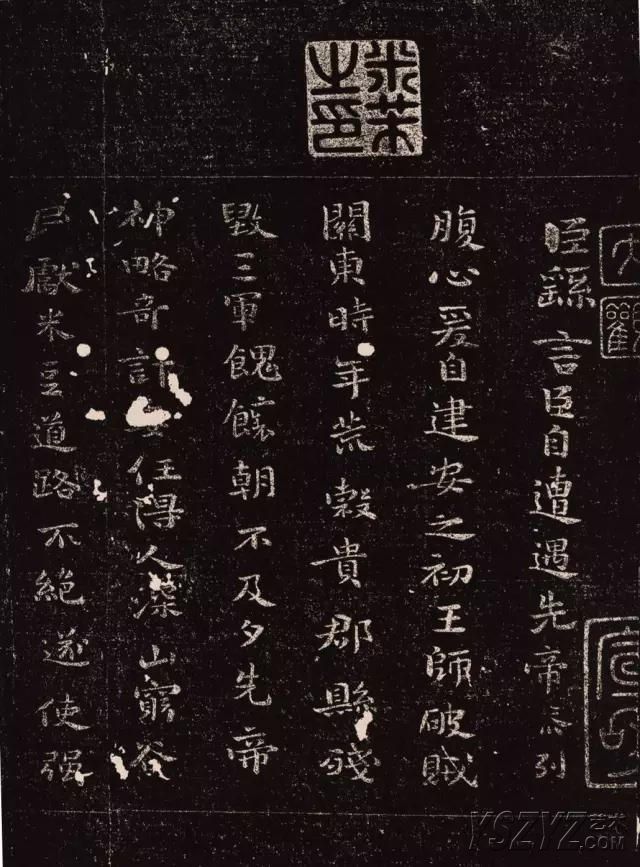 米芾之印
大觀
臣繇言臣自遭遇先帝忝列
腹心爰自建安之初王師破賊
關東時年荒穀貴郡縣殘
毀三軍餽饟朝不及夕先帝
神略奇計委任得人深山窮谷
民獻米豆道路不絕遂使强
YSZYZ艺术
.COM